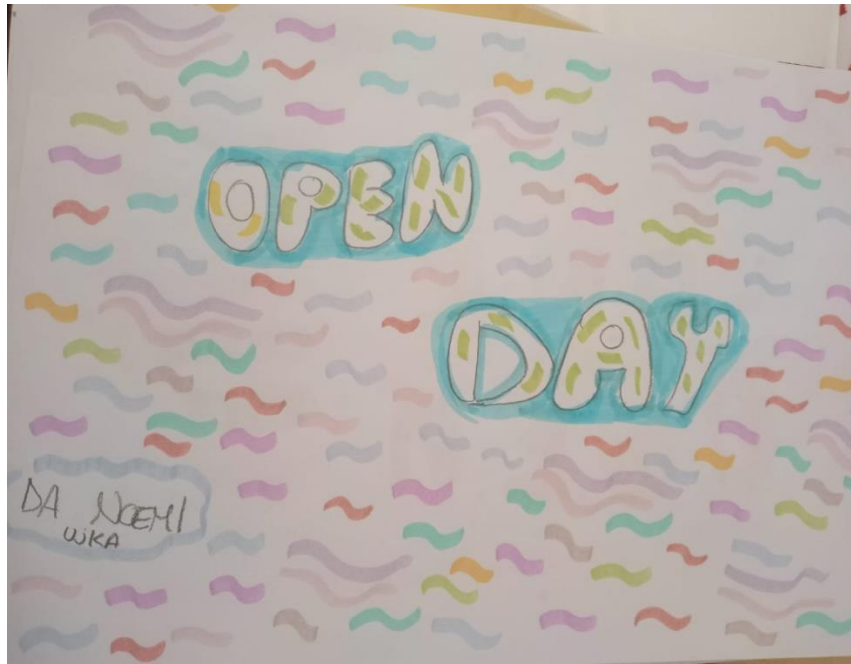 OPEN
DAY
DA NOEMI